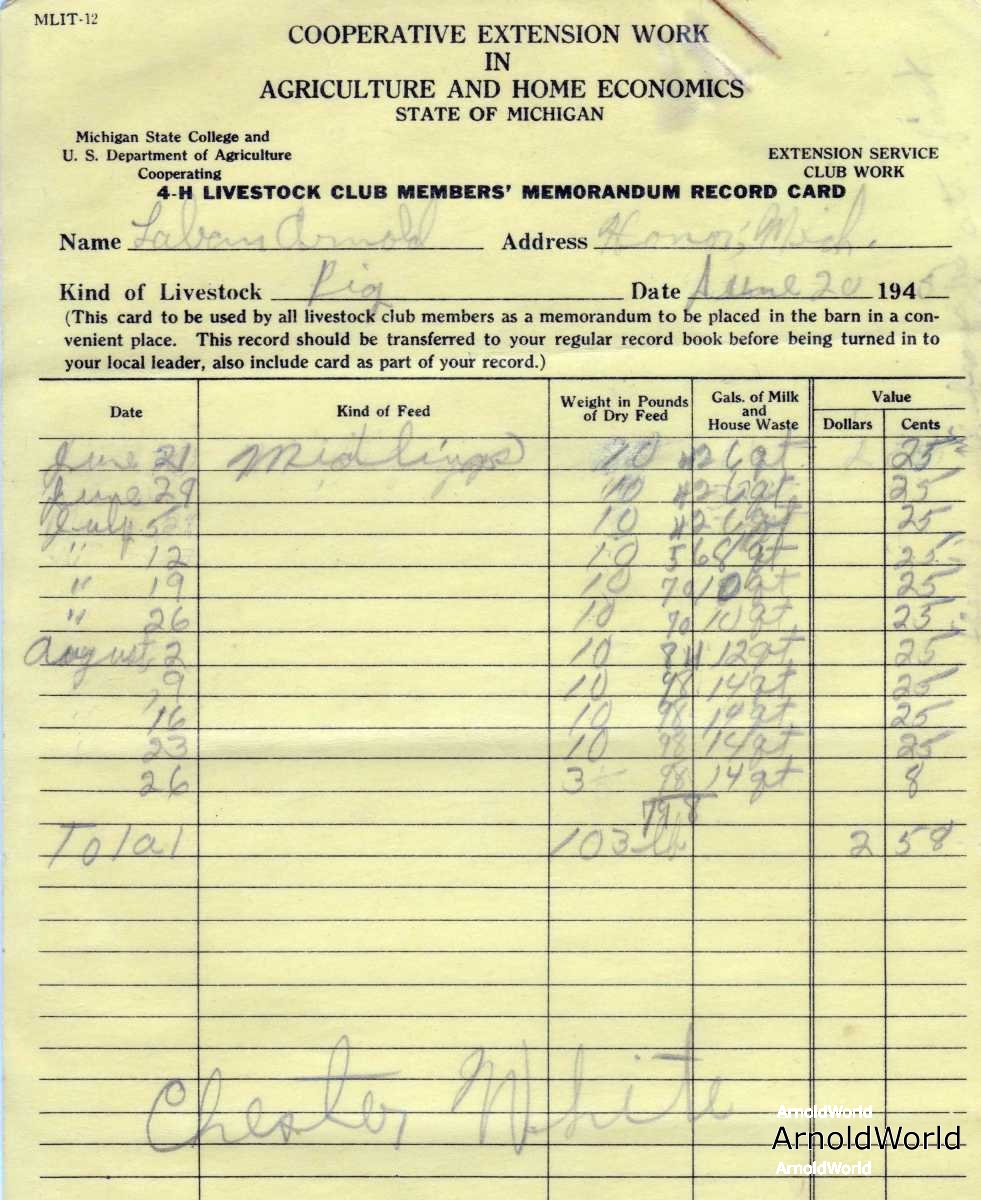 MLIT-12
COOPERATIVE EXTENSION WORK
IN
AGRICULTURE AND HOME ECONOMICS
STATE OF MICHIGAN
Michigan State College and
U. S. Department of Agriculture
Cooperating
EXTENSION SERVICE
CLUB WORK
4-H LIVESTOCK CLUB MEMBERS' MEMORANDUM RECORD CARD
Name Laban Arnold Address Honor, Mich.
Kind of Livestock Pig Date June 20 194
(This card to be used by all livestock club members as a memorandum to be placed in the barn in a con-
venient place. This record should be transferred to your regular record book before being turned in to
your local leader, also include card as part of your record.)
Date Kind of Feed Weight in Pounds of Dry Feed Gals. of Milk and House Waste Value Dollars Cents
June 21 Midlings 10 42 6 qt 25
June 29 10 42 6 qt 25
July 5 10 42 6 qt 25
" 12 10 56 8 qt 25
" 19 10 70 10 qt 25
" 26 10 70 10 qt 25
August 2 10 84 12 qt 25
9 10 98 14 qt 25
16 10 98 14 qt 25
23 10 98 14 qt 25
26 3 98 14 qt 8
798
Total 103 lb 2 58
Chester White
ArnoldWorld
ArnoldWorld
ArnoldWorld